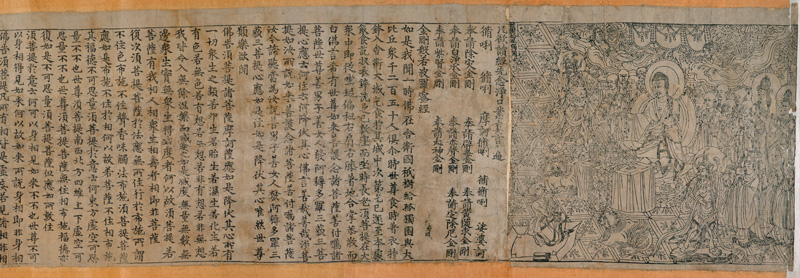 凡欲讀經先念淨口業真言一遍
脩唎 脩唎 摩訶脩唎 脩脩唎 娑婆訶
奉請除灾金剛 奉請辟毒金剛 奉請黃隨求金剛
奉請白淨水金剛 奉請赤聲金剛 奉請定除厄金剛
奉請紫賢金剛 奉請大神金剛
金剛般若波羅蜜經
如是我聞一時佛在舍衛國祇樹給孤獨園與大
比丘衆千二百五十人俱尒時世尊食時著衣持
鉢入舍衛大城乞食於其城中次第乞已還至本處
飯食訖收衣鉢洗足已敷座而坐時長老須菩提在大
衆中即從座起偏袒右肩右膝著地合掌恭敬而
白佛言希有世尊如來善護念諸菩薩善付囑諸
菩薩世尊善男子善女人發阿耨多羅三藐三菩
提心應云何住云何降伏其心佛言善哉善哉須菩
提如汝所說如來善護念諸菩薩善付囑諸菩薩
汝今諦聽當為汝說善男子善女人發阿耨多羅三
藐三菩提心應如是住如是降伏其心唯然世尊
願樂欲聞
佛告須菩提諸菩薩摩訶薩應如是降伏其心所有
一切衆生之類若卵生若胎生若濕生若化生若
有色若無色若有想若無想若非有想非無想
我皆令入無餘涅槃而滅度之如是滅度無量無數無
邊衆生實無衆生得滅度者何以故須菩提若
菩薩有我相人相衆生相壽者相即非菩薩
復次須菩提菩薩於法應無所住行於布施所謂
不住色布施不住聲香味觸法布施須菩提菩薩
應如是布施不住於相何以故若菩薩不住相布施
其福德不可思量須菩提於意云何東方虛空可思
量不不也世尊須菩提南西北方四維上下虛空可
思量不不也世尊須菩提菩薩無住相布施福德亦
復如是不可思量須菩提菩薩但應如所教住
須菩提於意云何可以身相見如來不不也世尊不可
以身相得見如來何以故如來所說身相即非身相
佛告須菩提凡所有相皆是虛妄若見諸相非相